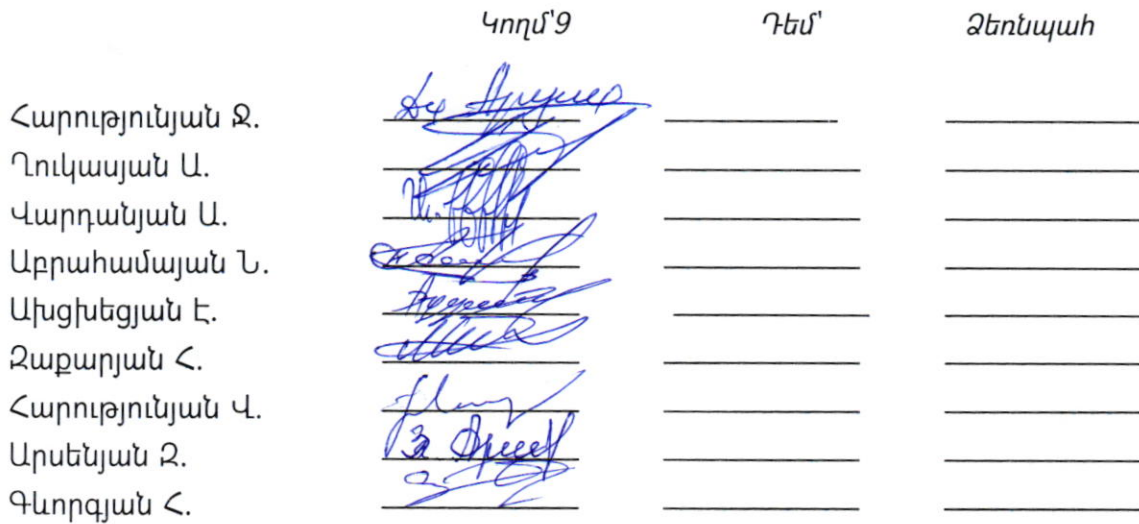 Կողմ՝9 Դեմ՝ Ձեռնպահ
Հարությունյան Ջ.
Ղուկասյան Ա.
Վարդանյան Ա.
Աբրահամայան Ն.
Ախցխեցյան Է.
Զաքարյան Հ.
Հարությունյան Վ.
Արսենյան Զ.
Գևորգյան Հ.